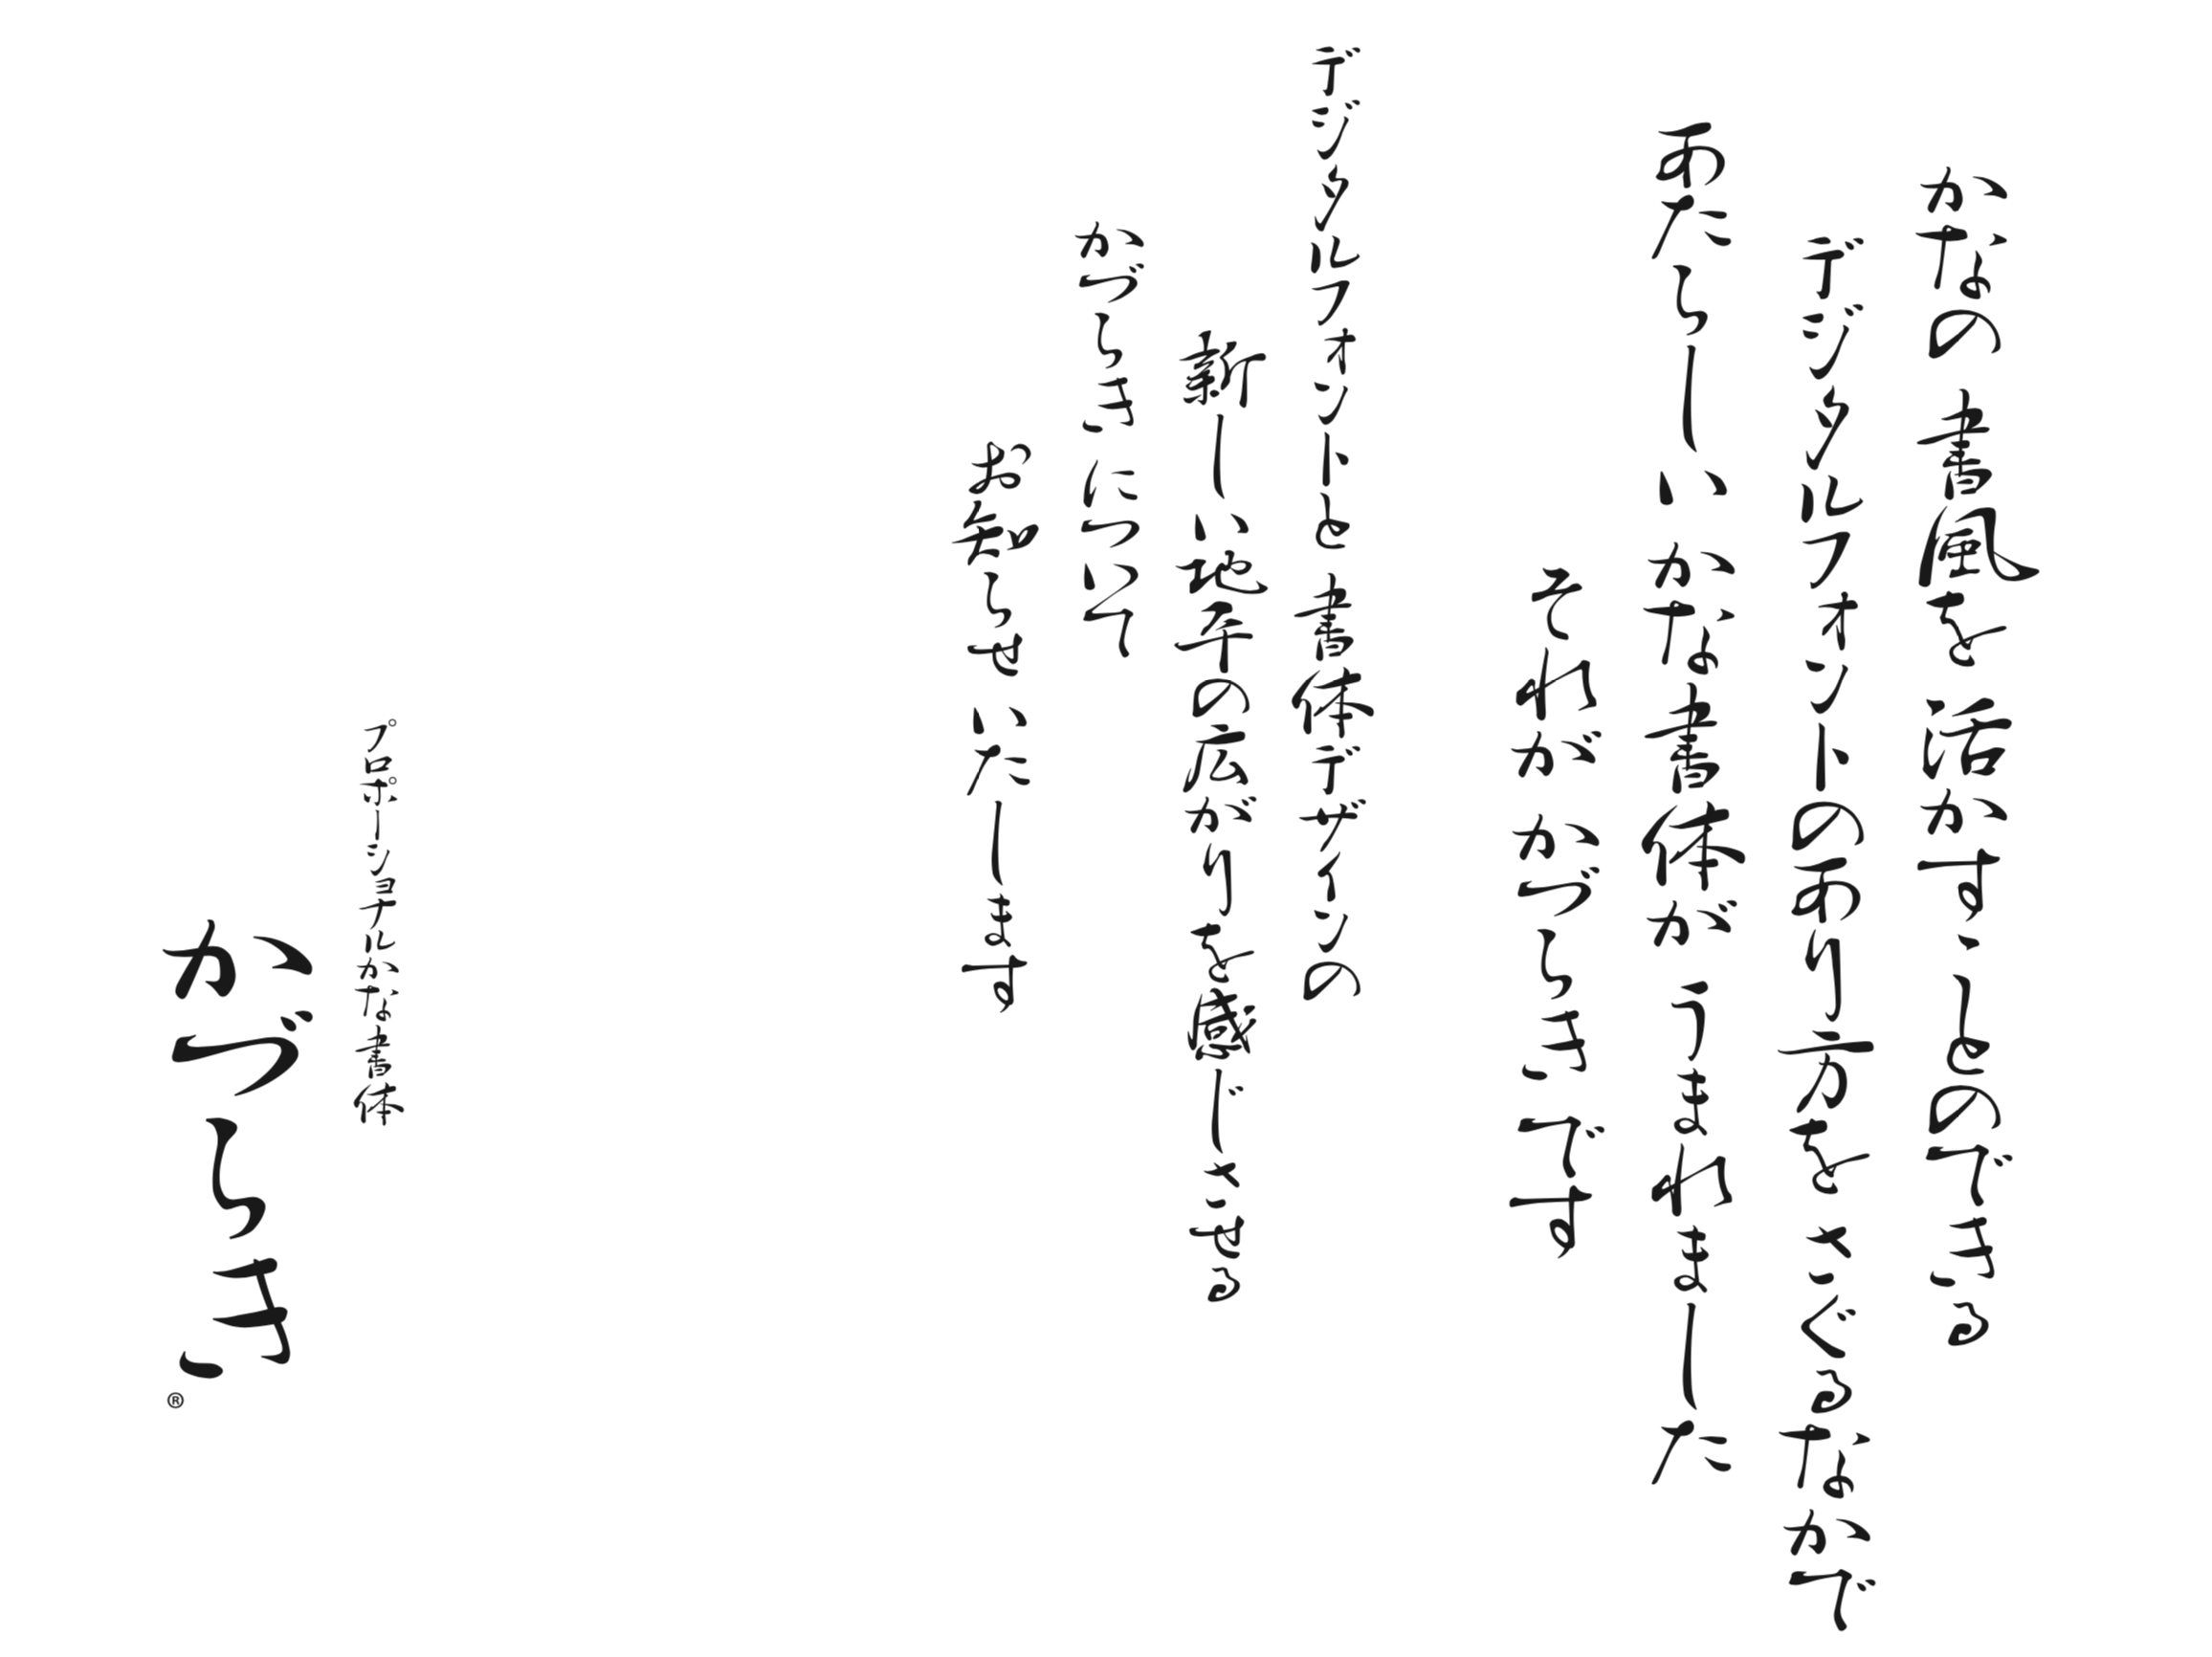 かなの書風を活かすことのできる
デジタルフォントのあり方をさぐるなかで
あたらしいかな書体がうまれました
それがかづらきです
デジタルフォントと書体デザインの
新しい地平の広がりを感じさせる
かづらきについて
お知らせいたします
プロポーショナルかな書体
かづらき
®